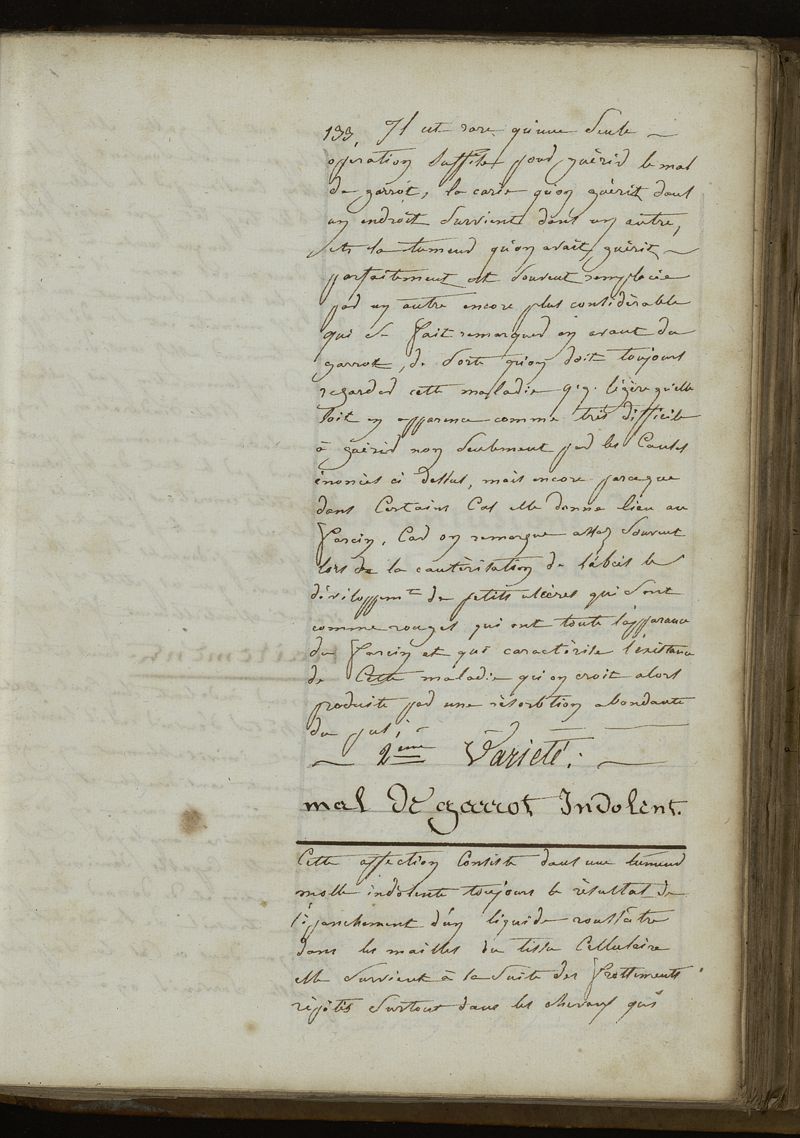 133, Il est rare qu'une seule
opération suffise pour guérir le mal
de garrot, la carie qu'on guérit dans
un endroit survient dans un autre,
et la tumeur qu'on avait guérit
parfaitement est souvent remplacée
par un autre encore plus considérable
qui se fait remarquer en avant du
garrot, de sorte qu'on doit toujours
regarder cette maladie q.q. légère qu'elle
soit en apparence comme très difficile
à guérir non seulement par les Causes
énoncées ci dessus, mais encore parceque
dans Certains Cas elle donne lieu au
farcin, Car on remarque assez souvent
lors de la cautérisation de l'abcès le
développemt de petits ulcères qui sont
comme rouges qui ont toute l'apparence
du farcin et qui caractérise l'existence
de Cette maladie qu'on croit alors
produite par une résorbtion abondante
du pus;
2ème Varieté:
mal De garrot Indolent.
Cette affection Consiste dans une tumeur
molle indolente toujours le résultat de
l'épanchement d'un liquide roussâtre
dans les mailles du tissu Cellulaire
elle survient à la suite des frottements
répétés surtout dans les chevaux qui